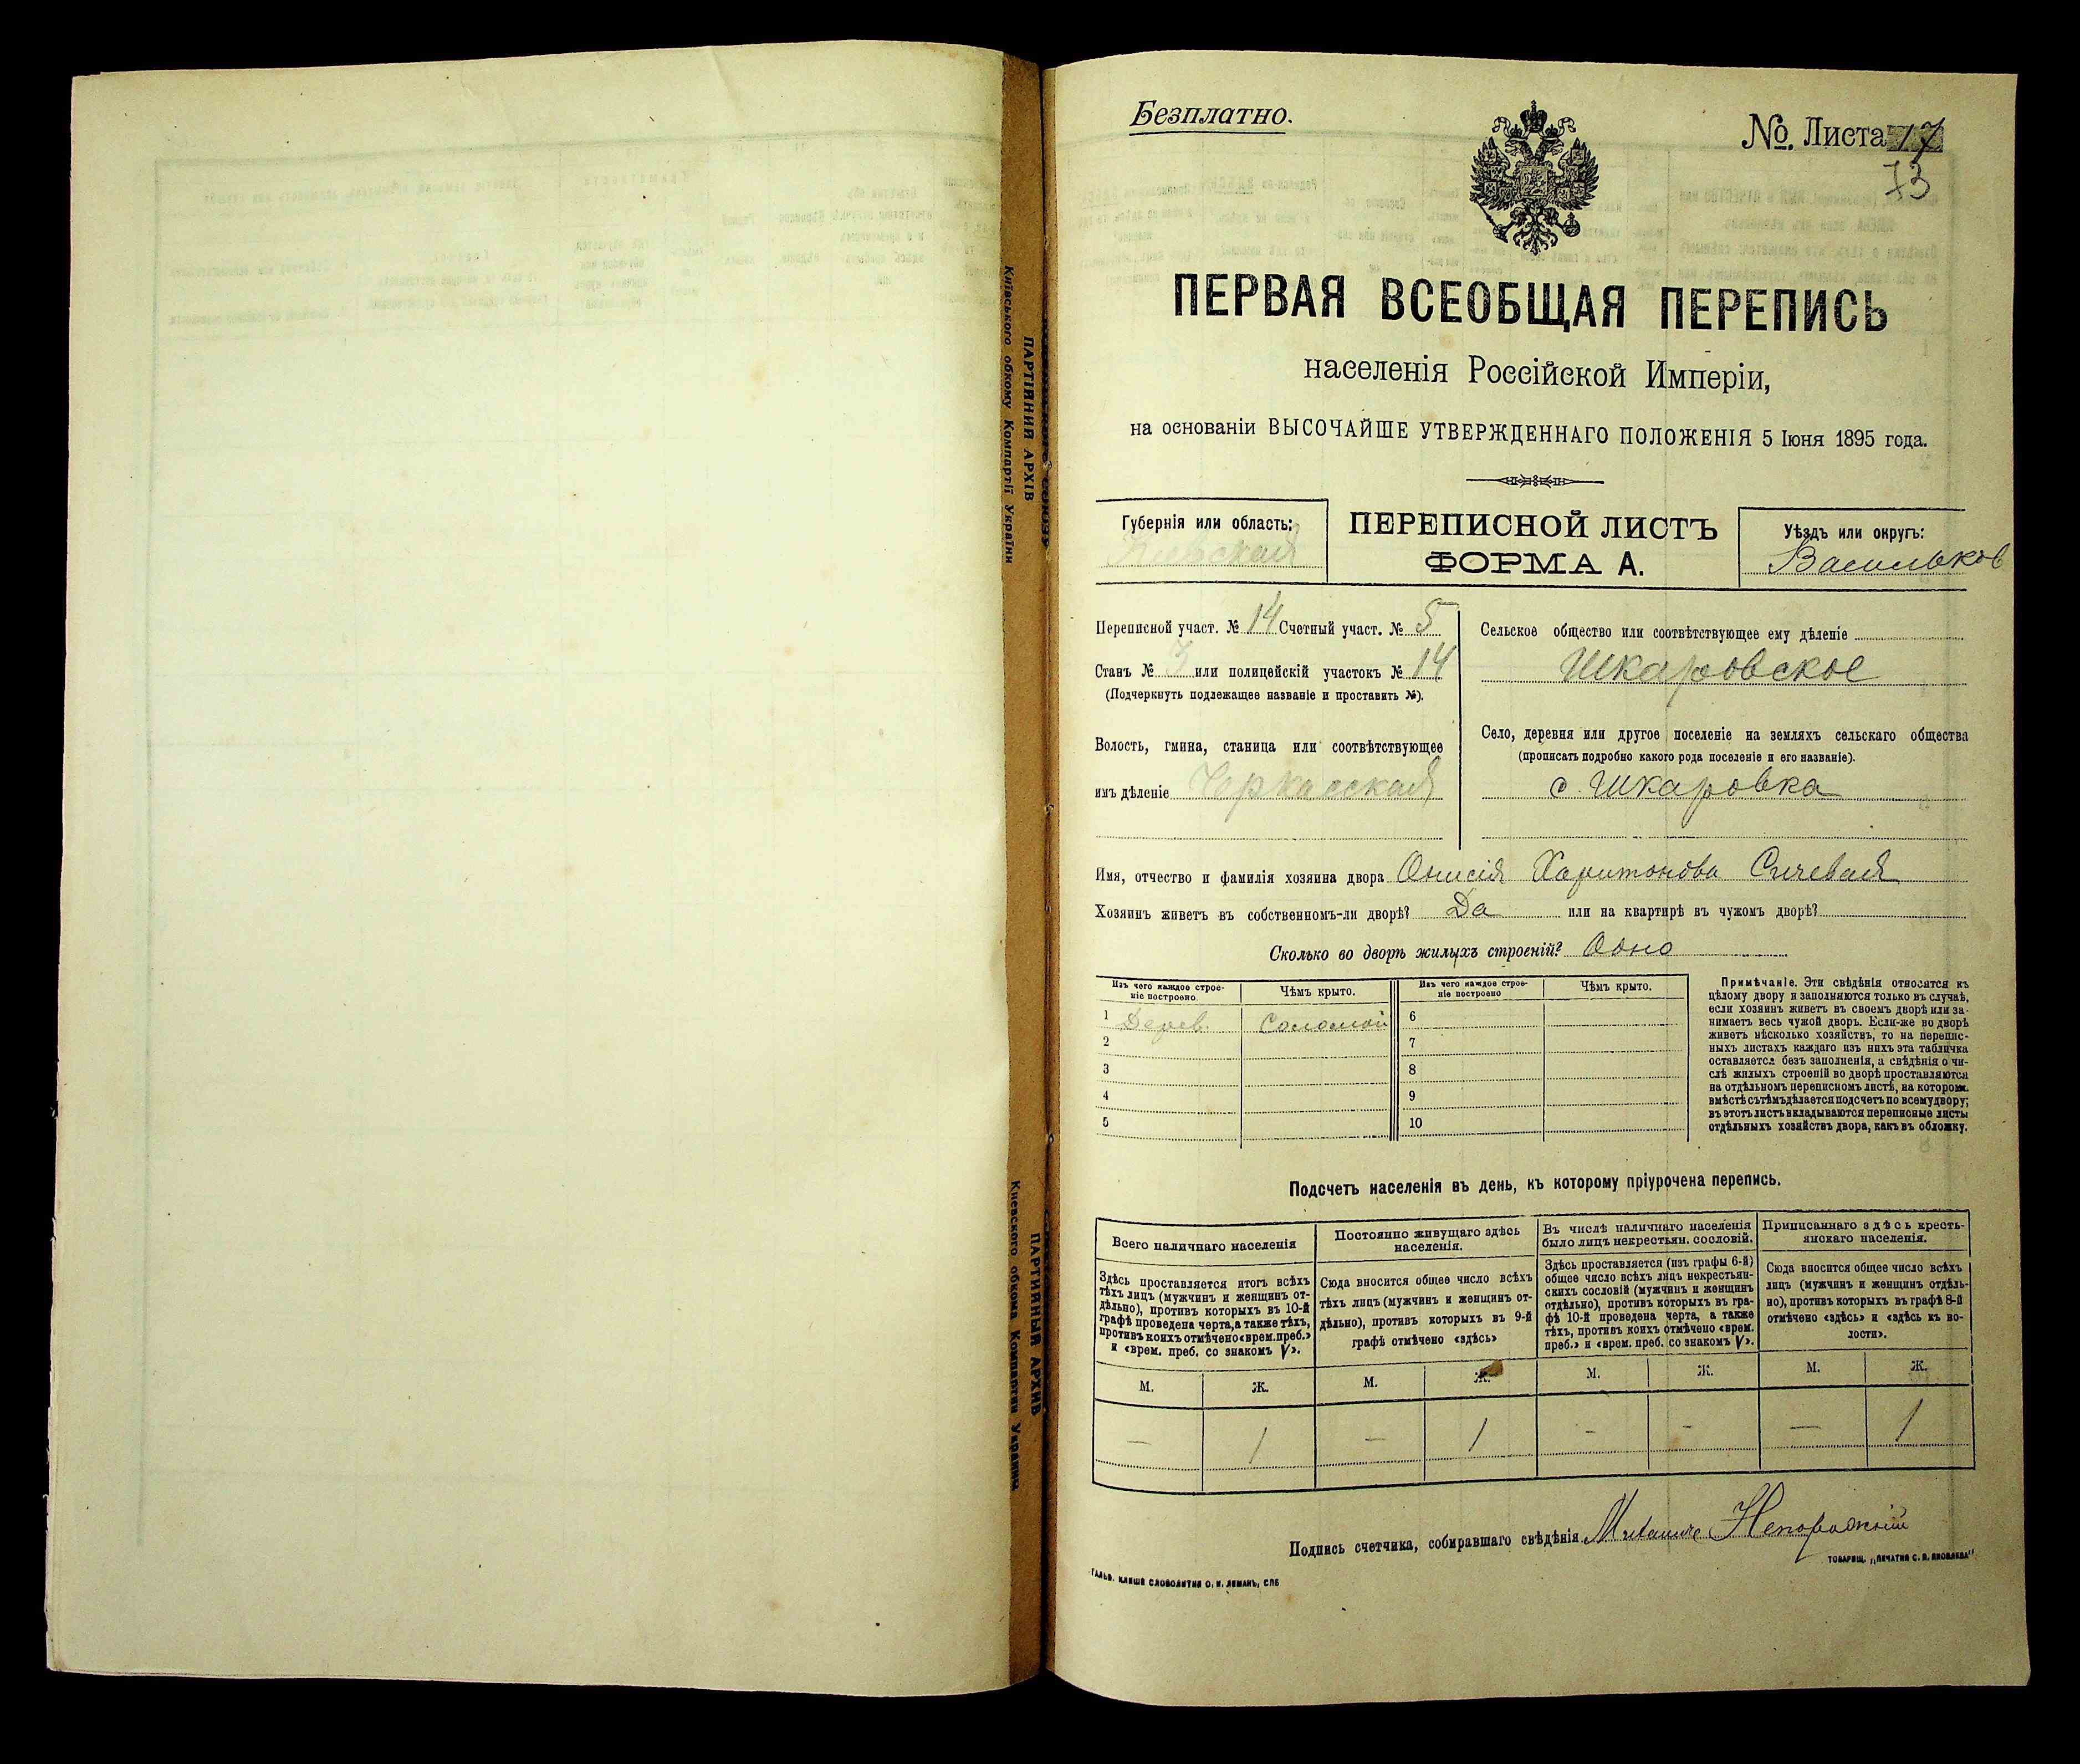 ПАРТІЙНИЙ АРХІВ
Київського обкому Компартії України
ПАРТИЙНЫЙ АРХИВ
Киевского обкома Компартии Украины
Безплатно.
№. Листа 17
73
ПЕРВАЯ ВСЕОБЩАЯ ПЕРЕПИСЬ
населенія Россійской Имперіи,
на основаніи ВЫСОЧАЙШЕ УТВЕРЖДЕННАГО ПОЛОЖЕНІЯ 5 Іюня 1895 года.
Губернія или область:
Киевская
ПЕРЕПИСНОЙ ЛИСТЪ
ФОРМА А.
Уѣздъ или округъ:
Васильков
Переписной участ. № 14 Счетный участ. № 5
Станъ № 3 или полицейскій участокъ № 14
(Подчеркнуть подлежащее названіе и проставить №).
Волость, гмина, станица или соотвѣтствующее
имъ дѣленіе Черкасская
Сельское общество или соотвѣтствующее ему дѣленіе
Шкаровское
Село, деревня или другое поселеніе на земляхъ сельскаго общества
(прописать подробно какого рода поселеніе и его названіе).
с. Шкаровка
Имя, отчество и фамилія хозяина двора Онисія Харитонова Сичевая
Хозяинъ живетъ въ собственномъ-ли дворѣ? Да или на квартирѣ въ чужомъ дворѣ?
Сколько во дворѣ жилыхъ строеній? Одно
Изъ чего каждое строе-
ніе построено
Чѣмъ крыто.
Изъ чего каждое строе-
ніе построено
Чѣмъ крыто.
1 Дерев. Соломой 6
2 7
3 8
4 9
5 10
Примѣчаніе. Эти свѣдѣнія относятся къ
цѣлому двору и заполняются только въ случаѣ,
если хозяинъ живетъ въ своемъ дворѣ или за-
нимаетъ весь чужой дворъ. Если-же во дворѣ
живетъ нѣсколько хозяйствъ, то на перепис-
ныхъ листахъ каждаго изъ нихъ эта табличка
оставляется безъ заполненія, а свѣдѣнія о чи-
слѣ жилыхъ строеній во дворѣ проставляются
на отдѣльномъ переписномъ листѣ, на которомъ
вмѣстѣ съ тѣмъ дѣлается подсчетъ по всему двору;
въ этотъ листъ вкладываются переписные листы
отдѣльныхъ хозяйствъ двора, какъ въ обложку.
Подсчетъ населенія въ день, къ которому пріурочена перепись.
Всего наличнаго населенія
Здѣсь проставляется итогъ всѣхъ
тѣхъ лицъ (мужчинъ и женщинъ от-
дѣльно), противъ которыхъ въ 10-й
графѣ проведена черта, а также тѣхъ,
противъ коихъ отмѣчено «врем. преб.»
и «врем. преб. со знакомъ V».
Постоянно живущаго здѣсь
населенія.
Сюда вносится общее число всѣхъ
тѣхъ лицъ (мужчинъ и женщинъ от-
дѣльно), противъ которыхъ въ 9-й
графѣ отмѣчено «здѣсь»
Въ числѣ наличнаго населенія
было лицъ некрестьян. сословій.
Здѣсь проставляется (изъ графы 6-й)
общее число всѣхъ лицъ некрестьян-
скихъ сословій (мужчинъ и женщинъ
отдѣльно), противъ которыхъ въ гра-
фѣ 10-й проведена черта, а также
тѣхъ, противъ коихъ отмѣчено «врем.
преб.» и «врем. преб. со знакомъ V».
Приписаннаго здѣсь кресть-
янскаго населенія.
Сюда вносится общее число всѣхъ
лицъ (мужчинъ и женщинъ отдѣль-
но), противъ которыхъ въ графѣ 8-й
отмѣчено «здѣсь» и «здѣсь къ во-
лости».
М. Ж. М. Ж. М. Ж. М. Ж.
— 1 — 1 - - — 1
Подпись счетчика, собиравшаго свѣдѣнія Непорожній
ТОВАРИЩ. „ПЕЧАТНЯ С. П. ЯКОВЛЕВА"
ГАЛЬВ. КЛИШЕ СЛОВОЛИТНИ О. И. ЛЕМАНЪ, СПБ